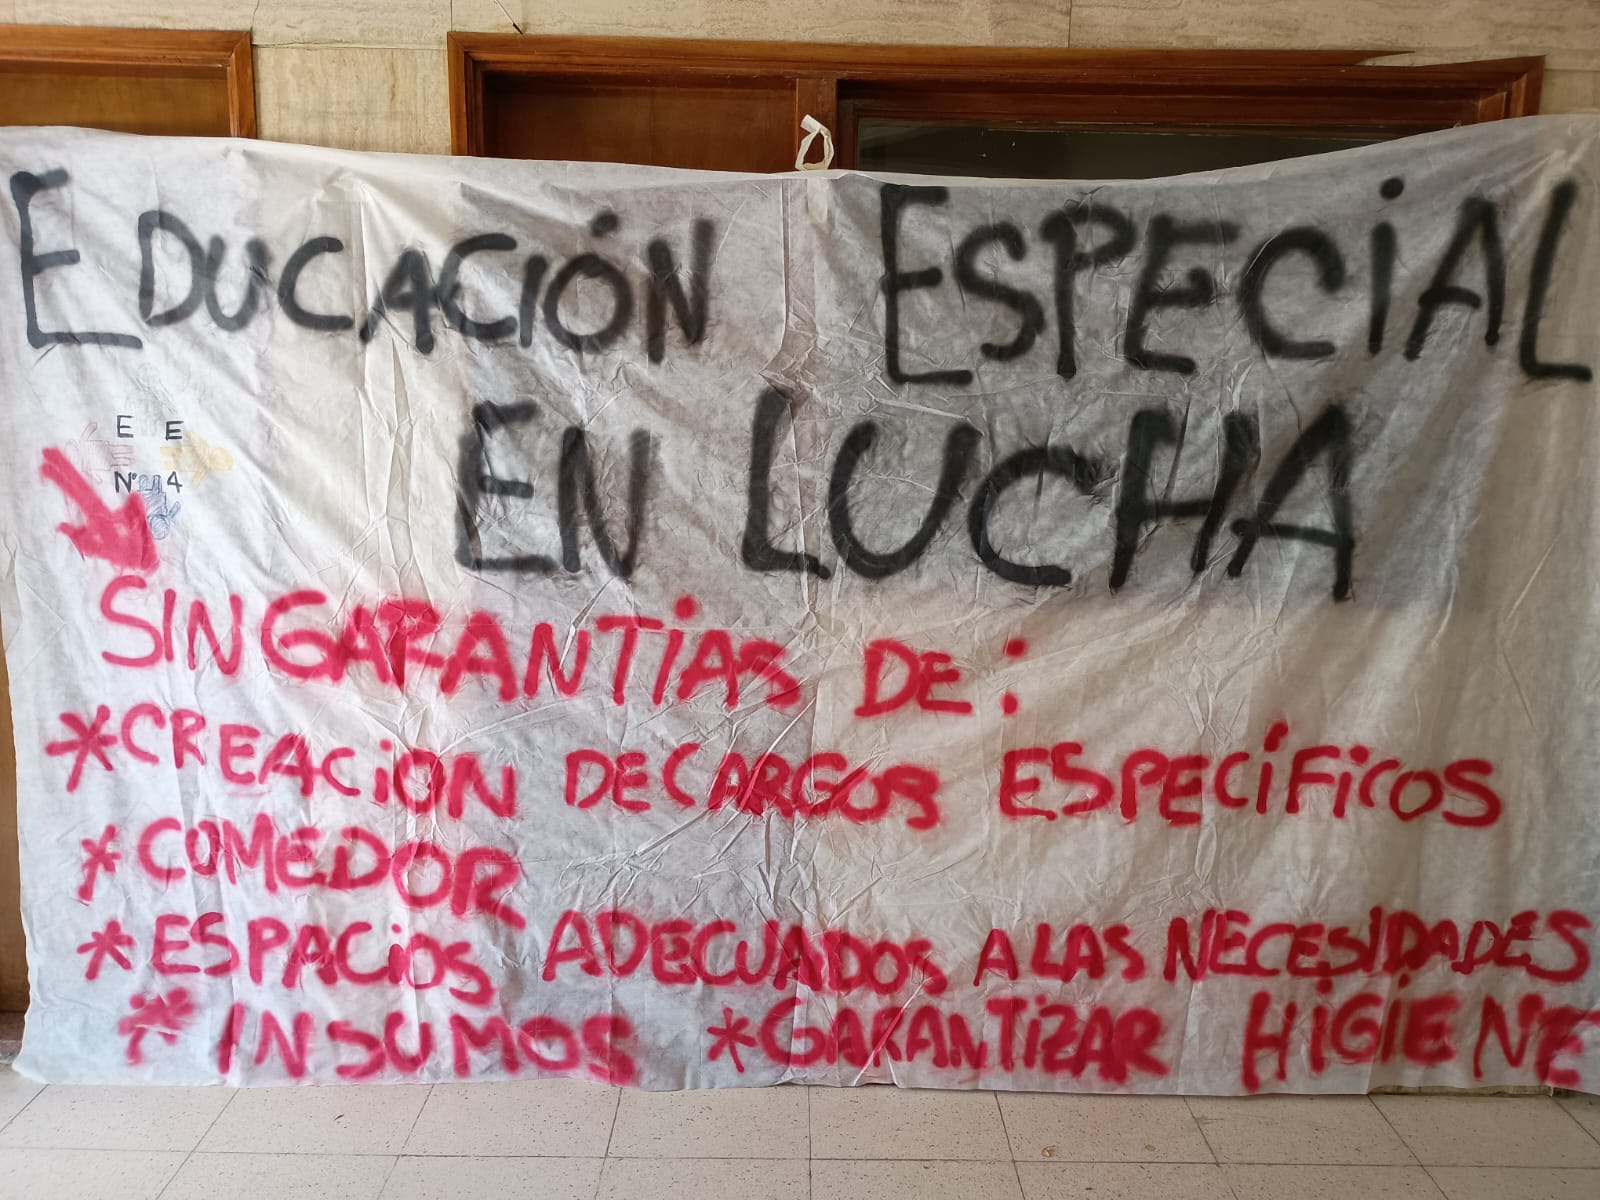 EDUCACIÓN ESPECIAL
EN LUCHA
E E
N° 4
SIN GARANTIAS DE:
*CREACIÓN DE CARGOS ESPECÍFICOS
*COMEDOR
*ESPACIOS ADECUADOS A LAS NECESIDADES
* INSUMOS *GARANTIZAR HIGIENE